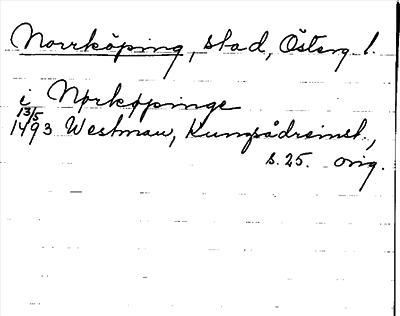 Norrköping, stad, Österg l.
i Nørkøpinge
13/5
1493 Westman, Kungsådreinst.,
s. 25. orig.